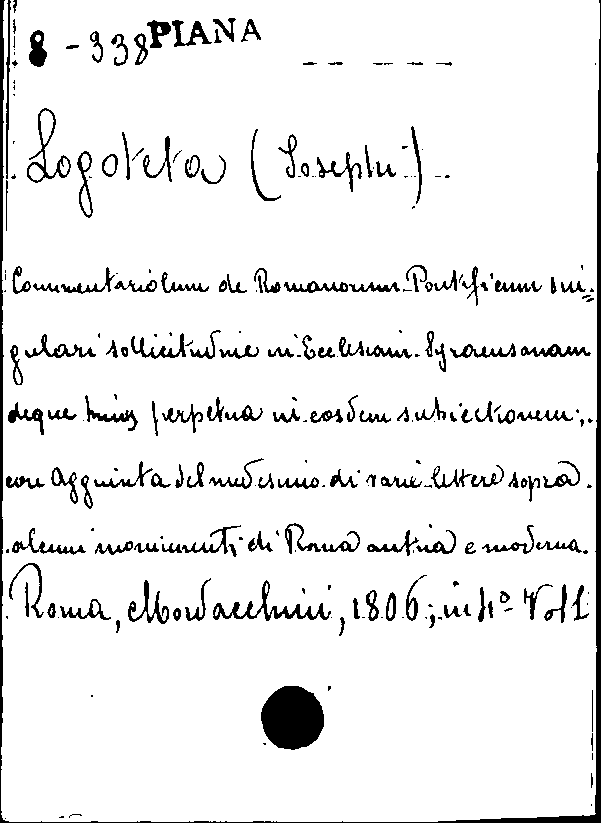 8-338 PIANA
Logoteta (Josephi).
Commentariolum de Romanorum Pontificum sin=
gulari sollicitudine in Ecclesiam Syracusanam
deque huius perpetua in eosdem subiectionem;
con Aggiunta del medesimo di varie lettere sopra
alcuni monumenti di Roma antica e moderna.
Roma, Mordacchini, 1806; in 4º Vol 1